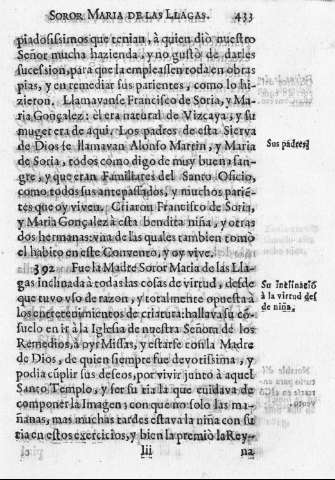 SOROR MARIA DE LAS LLAGAS. 433
piadosissimos que tenian, à quien diò nuestro
Señor mucha hazienda, y no gustò de darles
sucession, para que la empleassen toda en obras
pias, y en remediar sus parientes, como lo hi-
zieron. Llamavanse Francisco de Soria, y Ma-
ria Gonçalez: el era natural de Vizcaya, y su
muger era de aqui. Los padres de esta Sierva
de Dios se llamavan Alonso Martin, y Maria
de Soria, todos como digo de muy buena san-
gre, y que eran Familiares del Santo Oficio,
como todos sus antepassados, y muchos pariē-
tes que oy viven. Criaron Francisco de Soria,
y Maria Gonçalez à esta bendita niña, y otras
dos hermanas: vna de las quales tambien tomò
el habito en este Convento, y oy vive.
392 Fue la Madre Soror Maria de las Lla-
gas inclinada à todas las cosas de virtud, desde
que tuvo vso de razon, y totalmente opuesta à
los entretenimientos de criatura: hallava su cō-
suelo en ir à la Iglesia de nuestra Señora de los
Remedios, à oyr Missas, y estarse con la Madre
de Dios, de quien siempre fue devotissima, y
podia cūplir sus deseos, por vivir junto à aquel
Santo Templo, y ser su tia la que cuidava de
componer la Imagen; con que no solo las ma-
ñanas, mas muchas tardes estava la niña con su
tia en estos exercicios, y bien la premiò la Rey-
Iii na
Sus padres.
Su inclinaciō
à la virtud des
de niña.